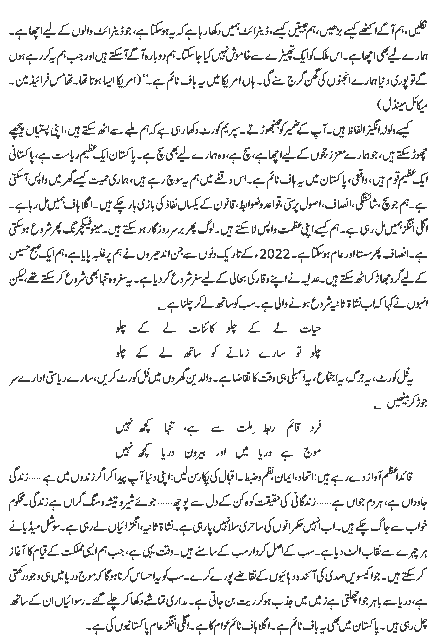 نکلیں، ہم آگے اکٹھے کیسے بڑھیں، ہم جیتیں کیسے، ڈیٹرائٹ ہمیں دکھا رہا ہے کہ یہ ہوسکتا ہے، جو ڈیٹرائٹ والوں کے لیے اچھا ہے۔
ہمارے لیے بھی اچھا ہے۔ اس ملک کو ایک تھپیڑے سے خاموش نہیں کیا جاسکتا۔ ہم دوبارہ آگے آسکتے ہیں اور جب ہم یہ کررہے ہوں
گے تو پوری دنیا ہمارے انجنوں کی گھن گرج سنے گی۔ ہاں امریکا میں یہ ہاف ٹائم ہے۔‘‘ (امریکا ایسا ہوتا تھا۔ تھامس فرائیڈمین۔
میکائل مینڈل)
کیسے ولولہ انگیز الفاظ ہیں۔ آپ کے ضمیر کو جھنجھوڑتے۔ سپریم کورٹ دکھا رہی ہے کہ ہم ملبے سے اٹھ سکتے ہیں، اپنی پستیاں پیچھے
چھوڑ سکتے ہیں، جو ہمارے معزز ججوں کے لیے اچھا ہے، سچ ہے، وہ ہمارے لیے بھی سچ ہے۔ پاکستان ایک عظیم ریاست ہے، پاکستانی
ایک عظیم قوم ہیں، واقعی، پاکستان میں یہ ہاف ٹائم ہے۔ اس وقفے میں ہم یہ سوچ رہے ہیں، ہماری حمیت کیسے گھر میں واپس آسکتی
ہے۔ ہم جو سچ، شائستگی، انصاف، اصول پرستی، قواعد وضوابط، قانون کے یکساں نفاذ کی بازی ہار چکے ہیں۔ اگلا ہاف ہمیں مل رہا ہے۔
اگلی اننگز ہمیں مل رہی ہے۔ ہم کیسے اپنی عظمت واپس لاسکتے ہیں۔ لوگ پھر برسر روزگار ہوسکتے ہیں۔ مینوفیکچرنگ پھر شروع ہوسکتی
ہے۔ انصاف پھر سستا اور عام ہوسکتا ہے۔ 2022ء کے تاریک دنوں سے جن اندھیروں نے ہم پر غلبہ پایا ہے، ہم ایک صبح حسیں
کے لیے گرد جھاڑ کر اٹھ سکتے ہیں۔ عدلیہ نے اپنے وقار کی بحالی کے لیے سفر شروع کردیا ہے۔ یہ سفر وہ تنہا بھی شروع کرسکتے تھے لیکن
انہوں نے کہا کہ اب نشاۃ ثانیہ شروع ہونے والی ہے۔ سب کو ساتھ لے کر چلنا ہے
حیات لے کے چلو کائنات لے کے چلو
چلو تو سارے زمانے کو ساتھ لے کے چلو
یہ فل کورٹ، یہ جرگہ، یہ اجتماع، یہ اسمبلی ہی وقت کا تقاضا ہے۔ والدین گھروں میں فل کورٹ کریں، سارے ریاستی ادارے سر
جوڑ کر بیٹھیں
فرد قائم ربط ملت سے ہے، تنہا کچھ نہیں
موج ہے دریا میں اور بیرون دریا کچھ نہیں
قائد اعظم آواز دے رہے ہیں: اتحاد، ایمان، نظم وضبط۔ اقبال کی پکار سن لیں: اپنی دنیا آپ پیدا کر اگر زندوں میں ہے…… زندگی
جاوداں ہے، ہر دم جواں ہے…… زندگانی کی حقیقت کوہ کن کے دل سے پوچھ…… جوئے شیر و تیشہ و سنگ گراں ہے زندگی۔ محکوم
خواب سے جاگ چکے ہیں۔ اب انہیں حکمرانوں کی ساحری سلا نہیں پارہی ہے۔ نشاۃ ثانیہ، انگڑائیاں لے رہی ہے۔ سوشل میڈیا نے
ہر چہرے سے نقاب الٹ دیا ہے۔ سب کے اصل کردار سب کے سامنے ہیں۔ وقت یہی ہے، جب ہم ایسی مملکت کے قیام کا آغاز
کرسکتے ہیں۔ جو اکیسویں صدی کی آئندہ دہائیوں کے تقاضے پورے کرے۔ سب کو یہ احساس کرنا ہوگا کہ موج دریا میں ہی وجود رکھتی
ہے، دریا سے باہر جو اچھلتی ہے زمیں میں جذب ہوکر ریت بن جاتی ہے۔ مداری تماشے دکھا کر چلے گئے۔ رسوائیاں ان کے ساتھ
چل رہی ہیں۔ پاکستان میں بھی یہ ہاف ٹائم ہے۔ اگلا ہاف ٹائم عوام کا ہے۔ اگلی اننگز عام پاکستانیوں کی ہے۔